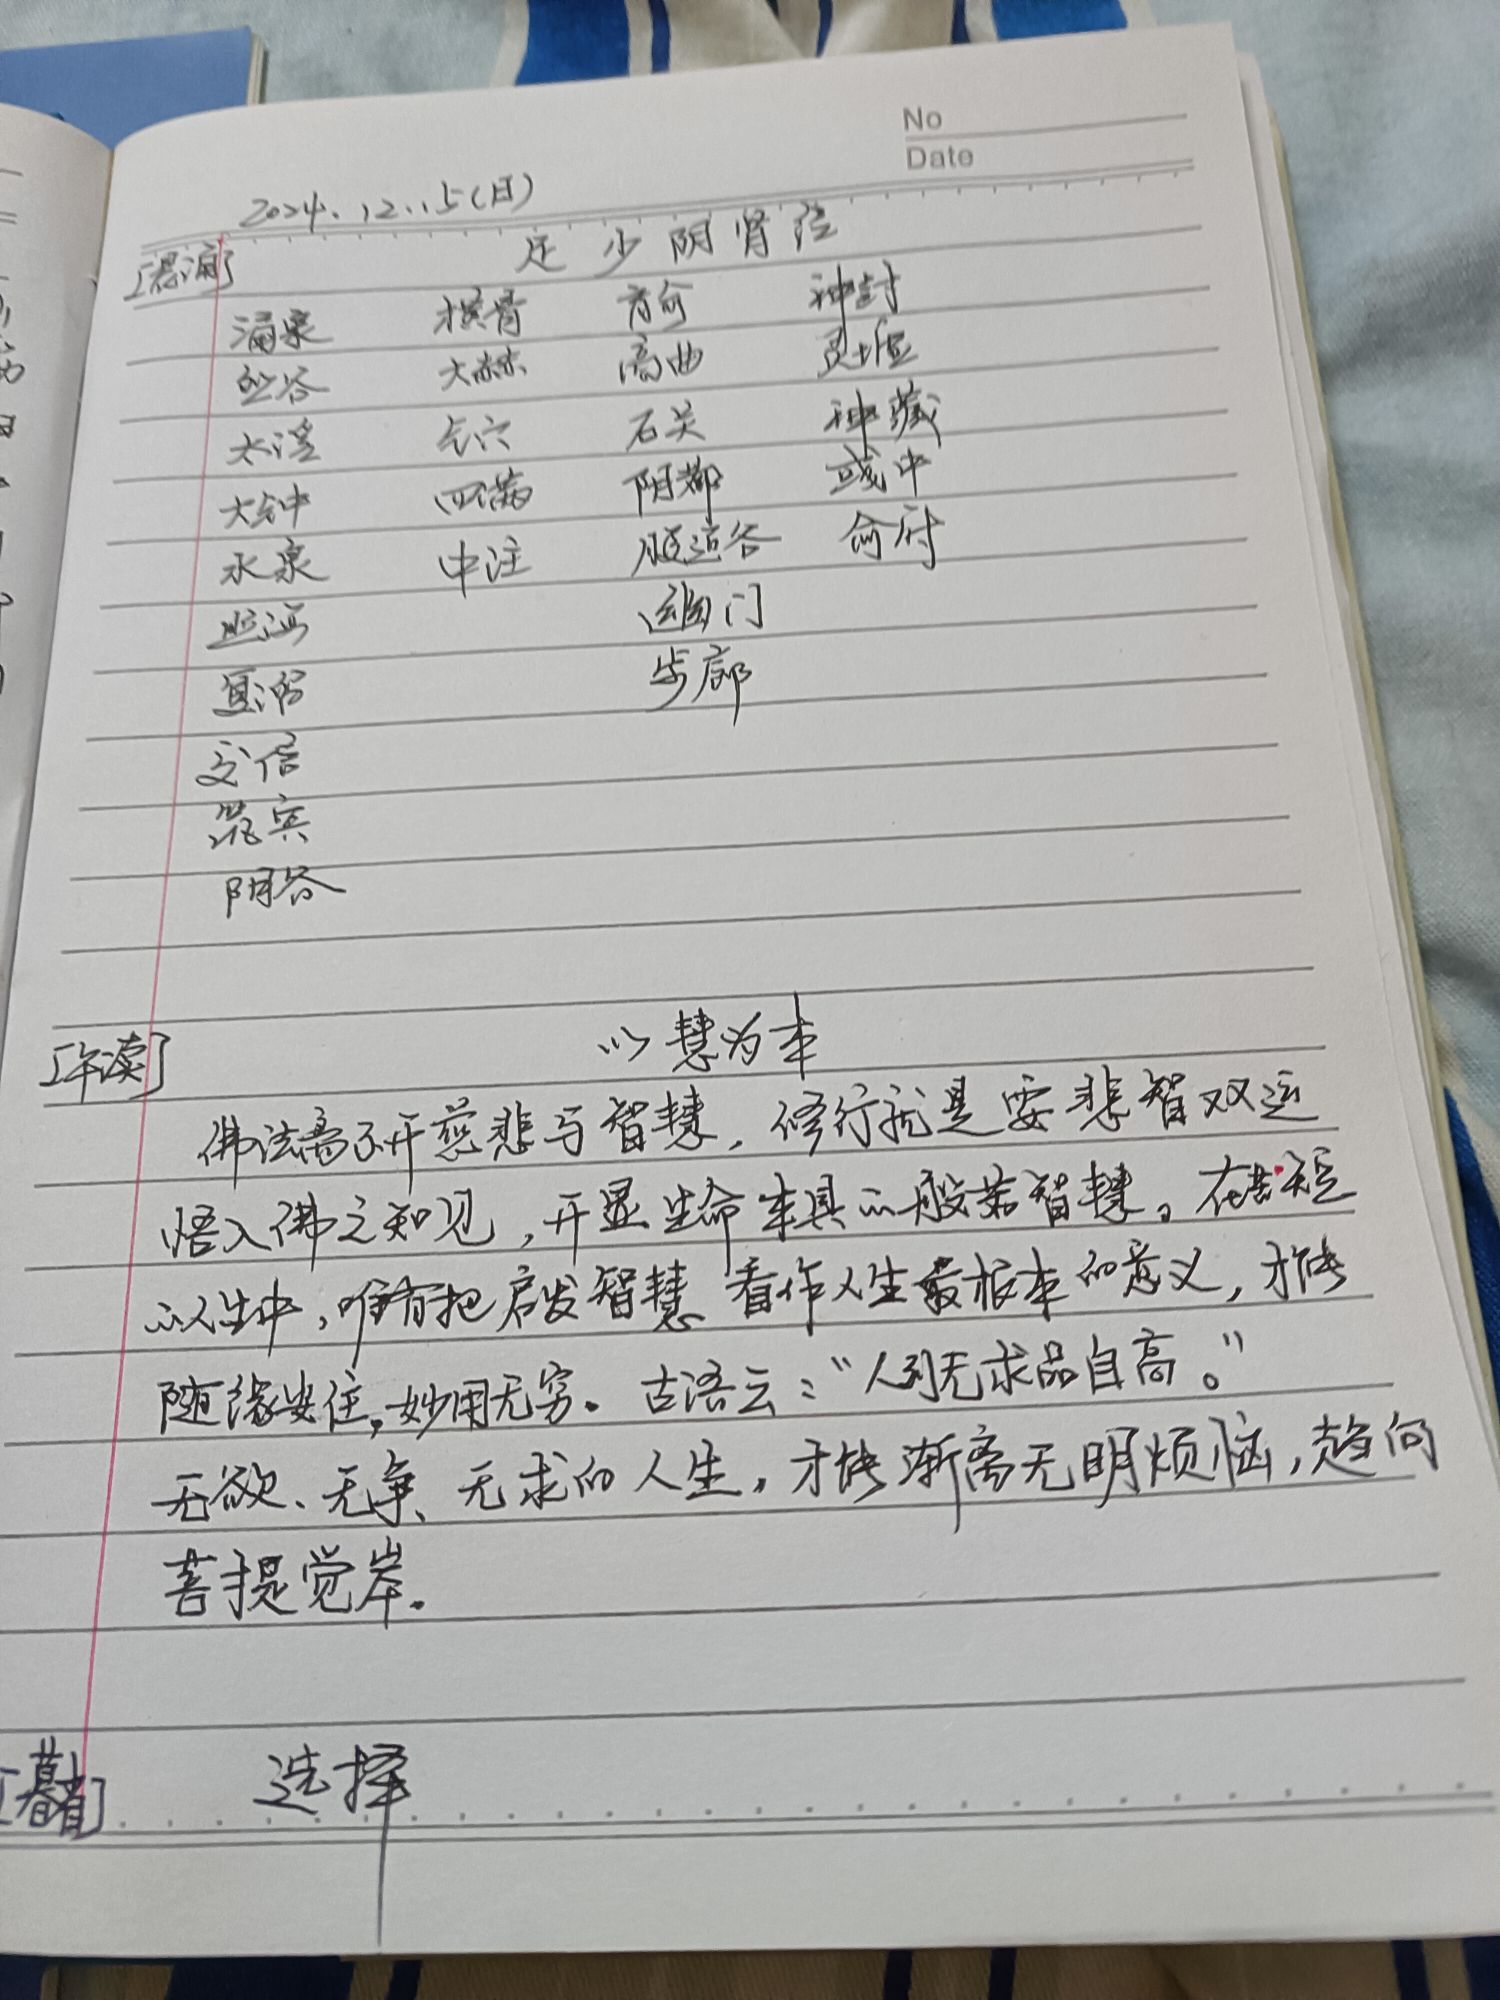 No
Date
2024.12.15(日)
[晨诵] 足少阴肾经
涌泉 横骨 肓俞 神封
然谷 大赫 商曲 灵墟
太溪 气穴 石关 神藏
大钟 四满 阴都 彧中
水泉 中注 腹通谷 俞府
照海 幽门
复溜 步廊
交信
筑宾
阴谷
[午读] 以慧为本
佛法离不开慈悲与智慧,修行就是要悲智双运
悟入佛之知见,开显生命本具的般若智慧。在苦短
的人生中,唯有把启发智慧看作人生最根本的意义,才能
随缘安住,妙用无穷。古语云:“人到无求品自高。”
无欲、无争、无求的人生,才能渐离无明烦恼,趋向
菩提觉岸.
[暮省] 选择